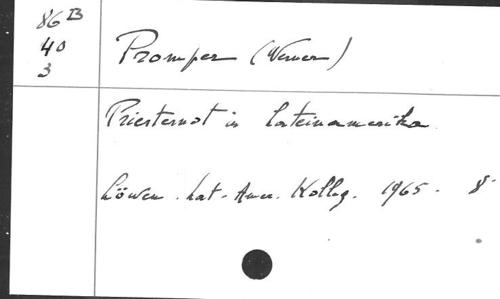 86 B
40
3
Promper (Werner)
Priesternot in Lateinamerika
Löwen. Lat-Amer. Kolleg. 1965. 8°